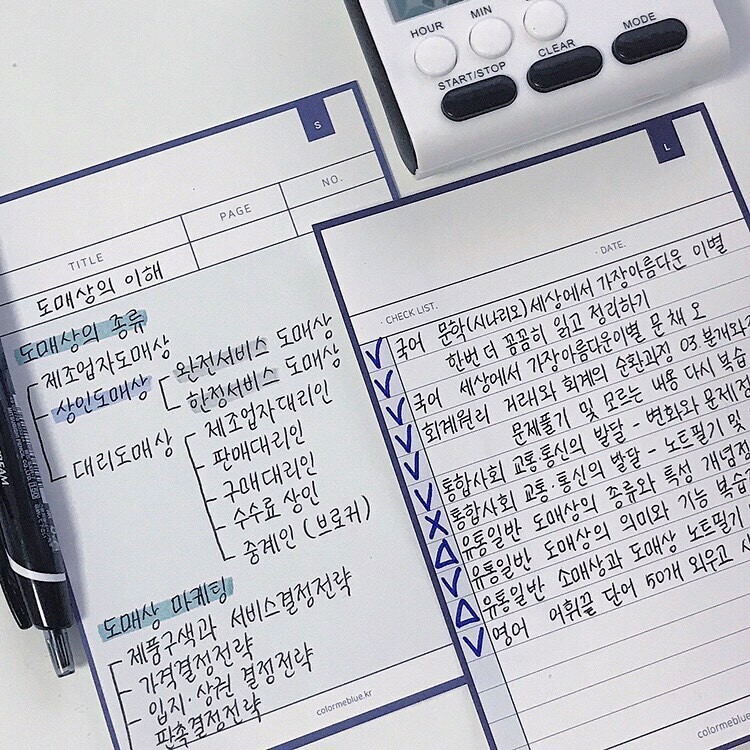 HOUR
MIN
START/STOP
CLEAR
MODE
S
TITLE
PAGE
NO.
도매상의 이해
도매상의 종류
제조업자도매상
상인도매상
완전서비스 도매상
한정서비스 도매상
대리도매상
제조업자대리인
판매대리인
구매대리인
수수료 상인
중계인 (브로커)
도매상 마케팅
제품구색과 서비스결정전략
가격결정전략
입지·상권 결정전략
판촉결정전략
colormeblue.kr
L
· DATE.
· CHECK LIST.
국어 문학(시나리오) 세상에서 가장아름다운 이별
한번 더 꼼꼼히 읽고 정리하기
국어 세상에서 가장아름다운이별 문 채 오
회계원리 거래와 회계의 순환과정 03 분개와
문제풀기 및 모르는 내용 다시 복습
통합사회 교통·통신의 발달 - 변화와 문제점
통합사회 교통·통신의 발달 - 노트필기 및
유통일반 도매상의 종류와 특성 개념정
유통일반 도매상의 의미와 기능 복습
유통일반 소매상과 도매상 노트필기
영어 어휘끝 단어 50개 외우고
colormeblue